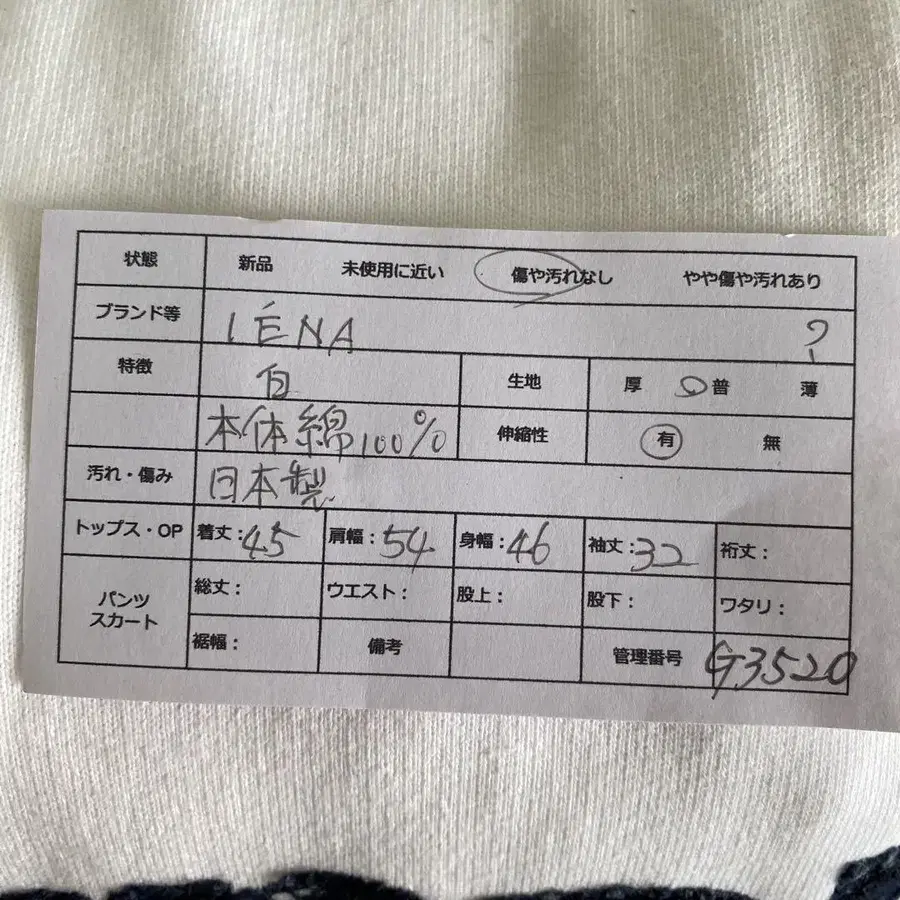 状態 新品 未使用に近い 傷や汚れなし やや傷や汚れあり
ブランド等 IÉNA ?
特徴 白 生地 厚 普 薄
本体綿100% 伸縮性 有 無
汚れ・傷み 日本製
トップス・OP 着丈:45 肩幅:54 身幅:46 袖丈:32 裄丈:
パンツ スカート 総丈: ウエスト: 股上: 股下: ワタリ:
裾幅: 備考 管理番号 G3520